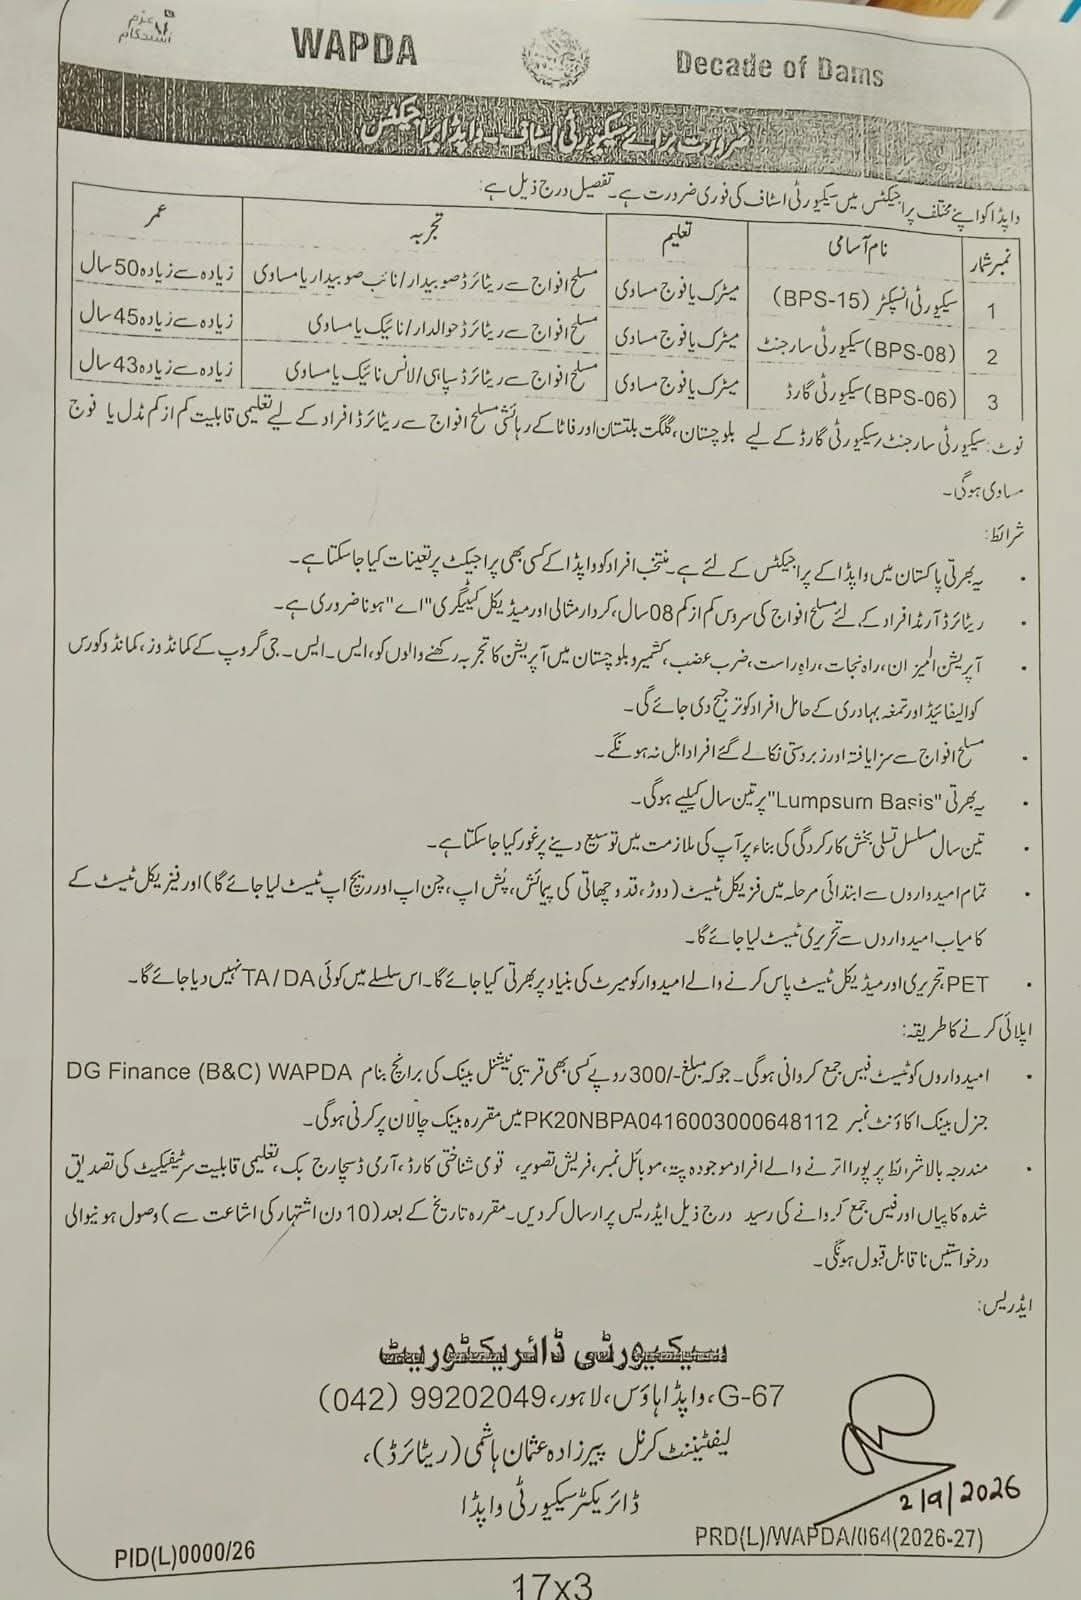 عزم استحکام
WAPDA
Decade of Dams
ضرورت برائے سیکیورٹی اسٹاف واپڈا پراجیکٹس
واپڈا کو اپنے مختلف پراجیکٹس میں سیکیورٹی اسٹاف کی فوری ضرورت ہے۔ تفصیل درج ذیل ہے:
نمبر شمار نام آسامی تعلیم تجربہ عمر
1 سیکیورٹی انسپکٹر (BPS-15) میٹرک یا فوج مساوی مسلح افواج سے ریٹائرڈ صوبیدار/نائب صوبیدار یا مساوی زیادہ سے زیادہ 50 سال
2 (BPS-08) سیکیورٹی سارجنٹ میٹرک یا فوج مساوی مسلح افواج سے ریٹائرڈ حوالدار/نائیک یا مساوی زیادہ سے زیادہ 45 سال
3 (BPS-06) سیکیورٹی گارڈ میٹرک یا فوج مساوی مسلح افواج سے ریٹائرڈ سپاہی/لانس نائیک یا مساوی زیادہ سے زیادہ 43 سال
نوٹ: سیکیورٹی سارجنٹ سیکیورٹی گارڈ کے لیے بلوچستان، گلگت بلتستان اور فاٹا کے رہائشی مسلح افواج سے ریٹائرڈ افراد کے لیے تعلیمی قابلیت کم از کم مڈل یا فوج
مساوی ہوگی۔
شرائط:
• یہ بھرتی پاکستان میں واپڈا کے پراجیکٹس کے لئے ہے۔ منتخب افراد کو واپڈا کے کسی بھی پراجیکٹ پر تعینات کیا جا سکتا ہے۔
• ریٹائرڈ آرمڈ افراد کے لئے مسلح افواج کی سروس کم از کم 08 سال، کردار مثالی اور میڈیکل کیٹیگری "اے" ہونا ضروری ہے۔
• آپریشن المیزان، راہ نجات، راہ راست، ضرب عضب، کشمیر و بلوچستان میں آپریشن کا تجربہ رکھنے والوں کو، ایس۔ ایس۔ جی گروپ کے کمانڈوز، کمانڈو کورس
کوالیفائیڈ اور تمغہ بہادری کے حامل افراد کو ترجیح دی جائے گی۔
• مسلح افواج سے سزا یافتہ اور زبردستی نکالے گئے افراد اہل نہ ہونگے۔
• یہ بھرتی "Lumpsum Basis" پر تین سال کیلیے ہوگی۔
• تین سال مسلسل تسلی بخش کارکردگی کی بناء پر آپ کی ملازمت میں توسیع دینے پر غور کیا جا سکتا ہے۔
• تمام امیدواروں سے ابتدائی مرحلہ میں فزیکل ٹیسٹ (دوڑ، قد و چھاتی کی پیمائش، پُش اپ، چن اپ اور ریچ اپ ٹیسٹ لیا جائے گا) اور فیزیکل ٹیسٹ کے
کامیاب امیدواروں سے تحریری ٹیسٹ لیا جائے گا۔
• PET، تحریری اور میڈیکل ٹیسٹ پاس کرنے والے امیدوار کو میرٹ کی بنیاد پر بھرتی کیا جائے گا۔ اس سلسلے میں کوئی TA/DA نہیں دیا جائے گا۔
اپلائی کرنے کا طریقہ:
• امیدواروں کو ٹیسٹ فیس جمع کروانی ہوگی۔ جو کہ مبلغ -/300 روپے کسی بھی قریبی نیشنل بینک کی برانچ بنام DG Finance (B&C) WAPDA
جنرل بینک اکاؤنٹ نمبر PK20NBPA0416003000648112 میں مقررہ بینک چالان پر کرنی ہوگی۔
• مندرجہ بالا شرائط پر پورا اترنے والے افراد موجودہ پتہ، موبائل نمبر، فریش تصویر، قومی شناختی کارڈ، آرمی ڈسچارج بک، تعلیمی قابلیت سرٹیفکیٹ کی تصدیق
شدہ کاپیاں اور فیس جمع کروانے کی رسید درج ذیل ایڈریس پر ارسال کر دیں۔ مقررہ تاریخ کے بعد (10 دن اشتہار کی اشاعت سے) وصول ہونیوالی
درخواستیں ناقابل قبول ہونگی۔
ایڈریس:
سیکیورٹی ڈائریکٹوریٹ
G-67، واپڈا ہاؤس، لاہور، 99202049 (042)
لیفٹیننٹ کرنل پیرزادہ عثمان ہاشمی (ریٹائرڈ)،
ڈائریکٹر سیکیورٹی واپڈا
2/9/2026
PRD(L)/WAPDA/064(2026-27)
PID(L)0000/26
17x3